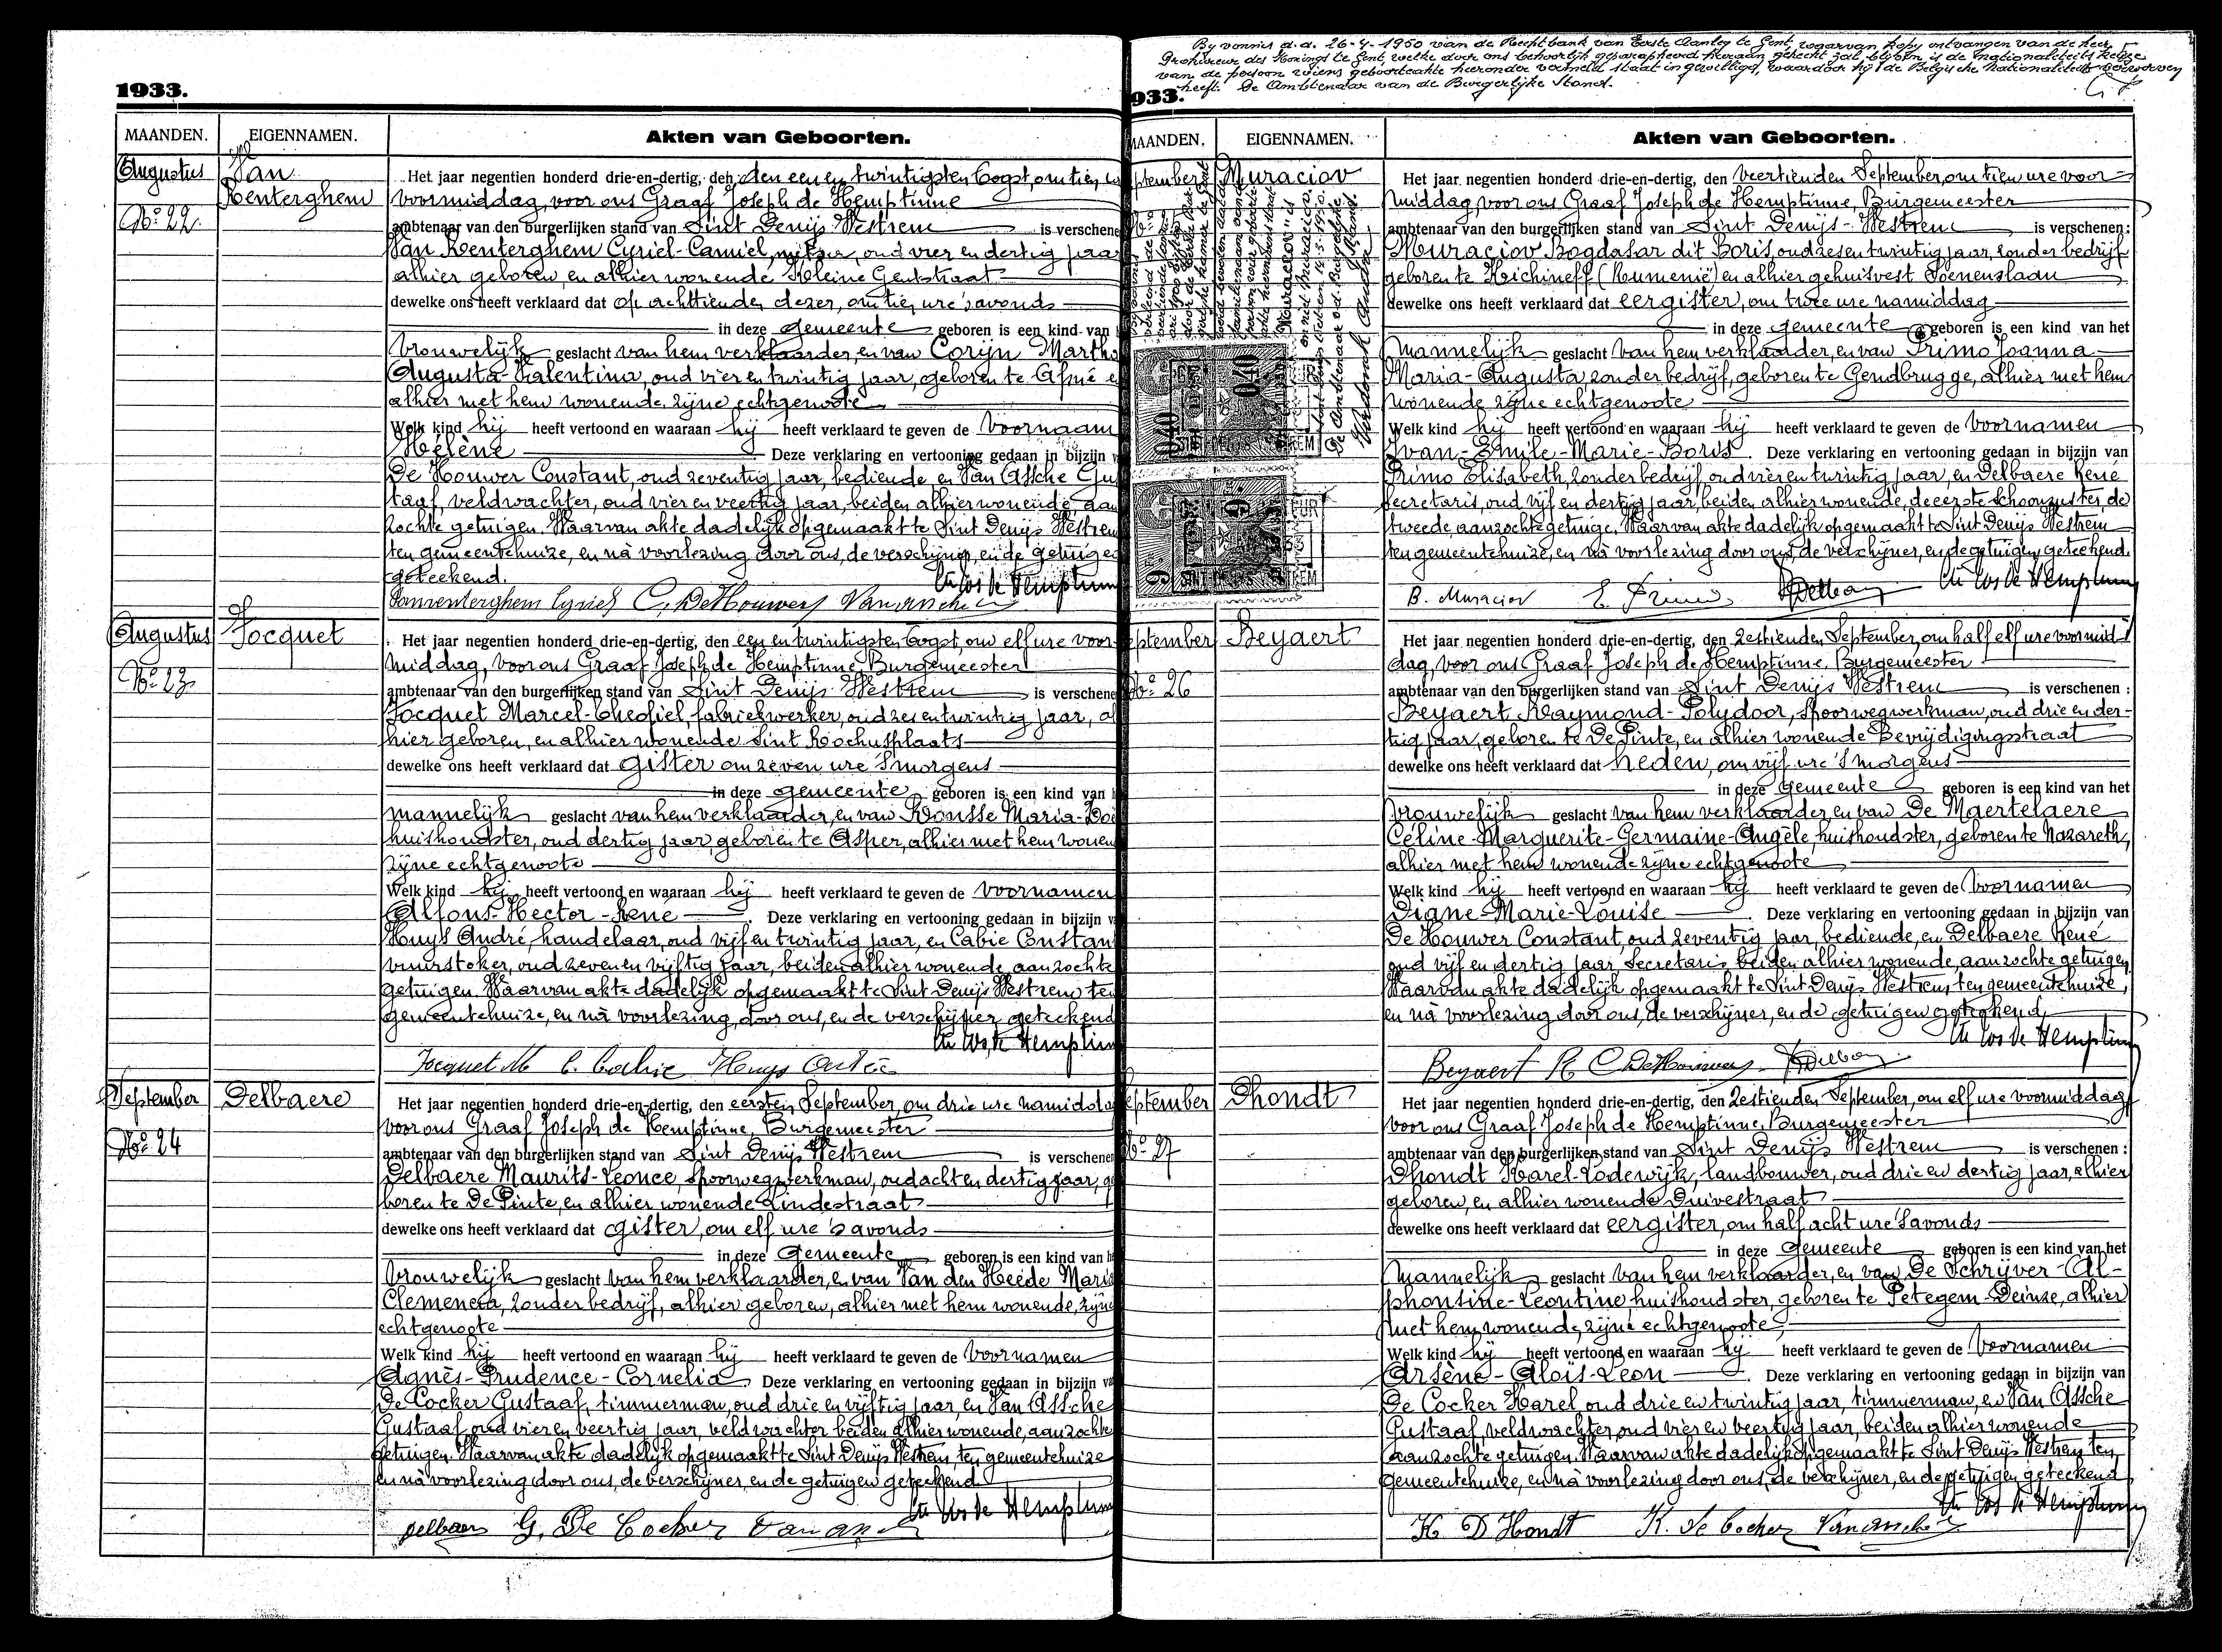 1933.
MAANDEN. EIGENNAMEN. Akten van Geboorten.
Augustus
No. 22.
Van
Renterghem
Het jaar negentien honderd drie-en-dertig, den den een en twintigsten Oogst, om tien
voormiddag, voor ons Graaf Joseph de Hemptinne
ambtenaar van den burgerlijken stand van Sint Denijs Westrem is verschene
Van Renterghem Cyriel-Camiel, oud vier en dertig jaar
alhier geboren, en alhier wonende Kleine Gentstraat
dewelke ons heeft verklaard dat op achttienden dezer, om tien ure 'savonds
in deze gemeente geboren is een kind van
vrouwelijk geslacht van hem verklaarder, en van Corijn Martha
Augusta-Valentina, oud vier en twintig jaar, geboren te Afsné e
alhier met hem wonende, zijne echtgenoote
Welk kind hij heeft vertoond en waaraan hij heeft verklaard te geven de voornaam
Hélène Deze verklaring en vertooning gedaan in bijzijn v
De Houwer Constant, oud zeventig jaar, bediende, en Van Assche Gus
taaf, veldwachter, oud vier en veertig jaar, beiden alhier wonende, aan
zochte getuigen. Waarvan akte dadelijk opgemaakt te Sint Denijs Westrem
ten gemeentehuize, en nà voorlezing door ons, de verschijner, en de getuigen
geteekend.
Cte Jos de Hemptinne
Vanrenterghem Cyriel C. DeHouwer Vanassche
Augustus
No. 23
Jocquet
Het jaar negentien honderd drie-en-dertig, den een en twintigsten Oogst, om elf ure voor
middag, voor ons Graaf Joseph de Hemptinne, Burgemeester
ambtenaar van den burgerlijken stand van Sint Denijs Westrem is verschene
Jocquet Marcel-Theofiel, fabriekwerker, oud zes en twintig jaar, al
hier geboren, en alhier wonende Sint Rochusplaats
dewelke ons heeft verklaard dat gister om zeven ure 's morgens
in deze gemeente geboren is een kind van
mannelijk geslacht van hem verklaarder, en van Rousse Maria
huishoudster, oud dertig jaar, geboren te Asper, alhier met hem wonen
zijne echtgenoote
Welk kind hij heeft vertoond en waaraan hij heeft verklaard te geven de voornamen
Alfons-Hector-René. Deze verklaring en vertooning gedaan in bijzijn v
Huys André, handelaar, oud vijf en twintig jaar, en Cabie Constan
vuurstoker, oud zeven en vijftig jaar, beiden alhier wonende aanzochte
getuigen. Waarvan akte dadelijk opgemaakt te Sint Denijs Westrem ten
gemeentehuize, en nà voorlezing, door ons, en de verschijner geteekend
Cte Jos de Hemptinne
Jocquet M C. Cabie Huys André
September
No. 24
Delbaere
Het jaar negentien honderd drie-en-dertig, den eersten September, om drie ure namiddag
voor ons Graaf Joseph de Hemptinne, Burgemeester
ambtenaar van den burgerlijken stand van Sint Denijs Westrem is verschenen
Delbaere Maurits-Leonce, spoorwegwerkman, oud acht en dertig jaar, ge
boren te De Pinte, en alhier wonende Lindestraat
dewelke ons heeft verklaard dat gister, om elf ure 's avonds
in deze Gemeente geboren is een kind van h
vrouwelijk geslacht van hem verklaarder, en van Van den Heede Maria
Clemencia, zonder bedrijf, alhier geboren, alhier met hem wonende, zijne
echtgenoote
Welk kind hij heeft vertoond en waaraan hij heeft verklaard te geven de voornamen
Agnès-Prudence-Cornelia. Deze verklaring en vertooning gedaan in bijzijn va
De Cocker Gustaaf, timmerman, oud drie en vijftig jaar, en Van Assche
Gustaaf oud vier en veertig jaar, veldwachter beiden alhier wonende, aanzochte
getuigen. Waarvan akte dadelijk opgemaakt te Sint Denijs Westrem ten gemeentehuize
en nà voorlezing door ons, de verschijner, en de getuigen geteekend
Cte Jos de Hemptinne
Delbaere G. De Cocker Vanassche
By vonnis d.d. 26-4-1950 van de Rechtbank van Eerste Aanleg te Gent, waarvan kopy ontvangen van de heer
Prokureur des Konings te Gent, welke door ons behoorlijk geparapheerd hieraan gehecht zal blyven is de nationaliteitskeuze
van de persoon wiens geboorteakte hieronder vermeld staat ingewilligd, waardoor hij de Belgische Nationaliteit verworven
heeft. De Ambtenaar van de Burgerlijke Stand.
933.
MAANDEN. EIGENNAMEN. Akten van Geboorten.
eptember
Muraciov
Het jaar negentien honderd drie-en-dertig, den veertienden September, om tien ure voor
middag, voor ons Graaf Joseph de Hemptinne, Burgemeester
ambtenaar van den burgerlijken stand van Sint Denijs-Westrem is verschenen:
Muraciov Bogdasar dit Boris, oud zes en twintig jaar, zonder bedrijf
geboren te Kichineff (Roumenië) en alhier gehuisvest Soenenslaan
dewelke ons heeft verklaard dat eergister, om twee ure namiddag
in deze gemeente geboren is een kind van het
mannelijk geslacht van hem verklaarder, en van Primo Joanna
Maria-Augusta, zonder bedrijf, geboren te Gendbrugge, alhier met hem
wonende zijne echtgenoote
Welk kind hij heeft vertoond en waaraan hij heeft verklaard te geven de voornamen
Ivan-Emile-Marie-Boris. Deze verklaring en vertooning gedaan in bijzijn van
Primo Elisabeth, zonder bedrijf, oud vier en twintig jaar, en Delbaere René
secretaris, oud vijf en dertig jaar, beiden alhier wonende, de eerste schoonzuster, de
tweede aanzochte getuige. Waarvan akte dadelijk opgemaakt te Sint Denijs Westrem
ten gemeentehuize, en nà voorlezing door ons, de verschijner, en de getuigen geteekend.
Cte Jos de Hemptinne
B. Muraciov E. Primo RDelbaere
eptember
No. 26
Beyaert
Het jaar negentien honderd drie-en-dertig, den zestienden September, om half elf ure voormid-
dag, voor ons Graaf Joseph de Hemptinne, Burgemeester
ambtenaar van den burgerlijken stand van Sint Denijs Westrem is verschenen :
Beyaert Raymond-Polydoor, spoorwegwerkman, oud drie en der-
tig jaar, geboren te De Pinte, en alhier wonende Bevrijdigingsstraat
dewelke ons heeft verklaard dat heden, om vijf ure 's morgens
in deze Gemeente geboren is een kind van het
vrouwelijk geslacht van hem verklaarder, en van De Maertelaere
Céline-Marguerite-Germaine-Angèle, huishoudster, geboren te Nazareth,
alhier met hem wonende zijne echtgenoote
Welk kind hij heeft vertoond en waaraan hij heeft verklaard te geven de voornamen
Diane-Marie-Louise. Deze verklaring en vertooning gedaan in bijzijn van
De Houwer Constant, oud zeventig jaar, bediende, en Delbaere René
oud vijf en dertig jaar, Secretaris beiden alhier wonende, aanzochte getuigen.
Waarvan akte dadelijk opgemaakt te Sint Denijs Westrem, ten gemeentehuize,
en nà voorlezing door ons, de verschijner, en de getuigen geteekend
Cte Jos de Hemptinne
Beyaert R C DeHouwer RDelbaere
eptember
No. 27
Dhondt
Het jaar negentien honderd drie-en-dertig, den zestienden September, om elf ure voormiddag
voor ons Graaf Joseph de Hemptinne, Burgemeester
ambtenaar van den burgerlijken stand van Sint Denijs Westrem is verschenen :
Dhondt Karel-Lodewijk, landbouwer, oud drie en dertig jaar, alhier
geboren, en alhier wonende Duivestraat
dewelke ons heeft verklaard dat eergister, om half acht ure 's avonds
in deze Gemeente geboren is een kind van het
mannelijk geslacht van hem verklaarder, en van De Schrijver-Al-
phonsine-Leontine, huishoudster, geboren te Petegem-Deinze, alhier
met hem wonende, zijne echtgenoote
Welk kind hij heeft vertoond en waaraan hij heeft verklaard te geven de voornamen
Arsène-Aloïs-Leon. Deze verklaring en vertooning gedaan in bijzijn van
De Cocker Karel, oud drie en twintig jaar, timmerman, en Van Assche
Gustaaf, veldwachter, oud vier en veertig jaar, beiden alhier wonende
aanzochte getuigen. Waarvan akte dadelijk opgemaakt te Sint Denijs Westrem ten
Gemeentehuize, en nà voorlezing door ons, de verschijner, en de getuigen geteekend
Cte Jos de Hemptinne
K D'Hondt K. De Cocker Vanassche